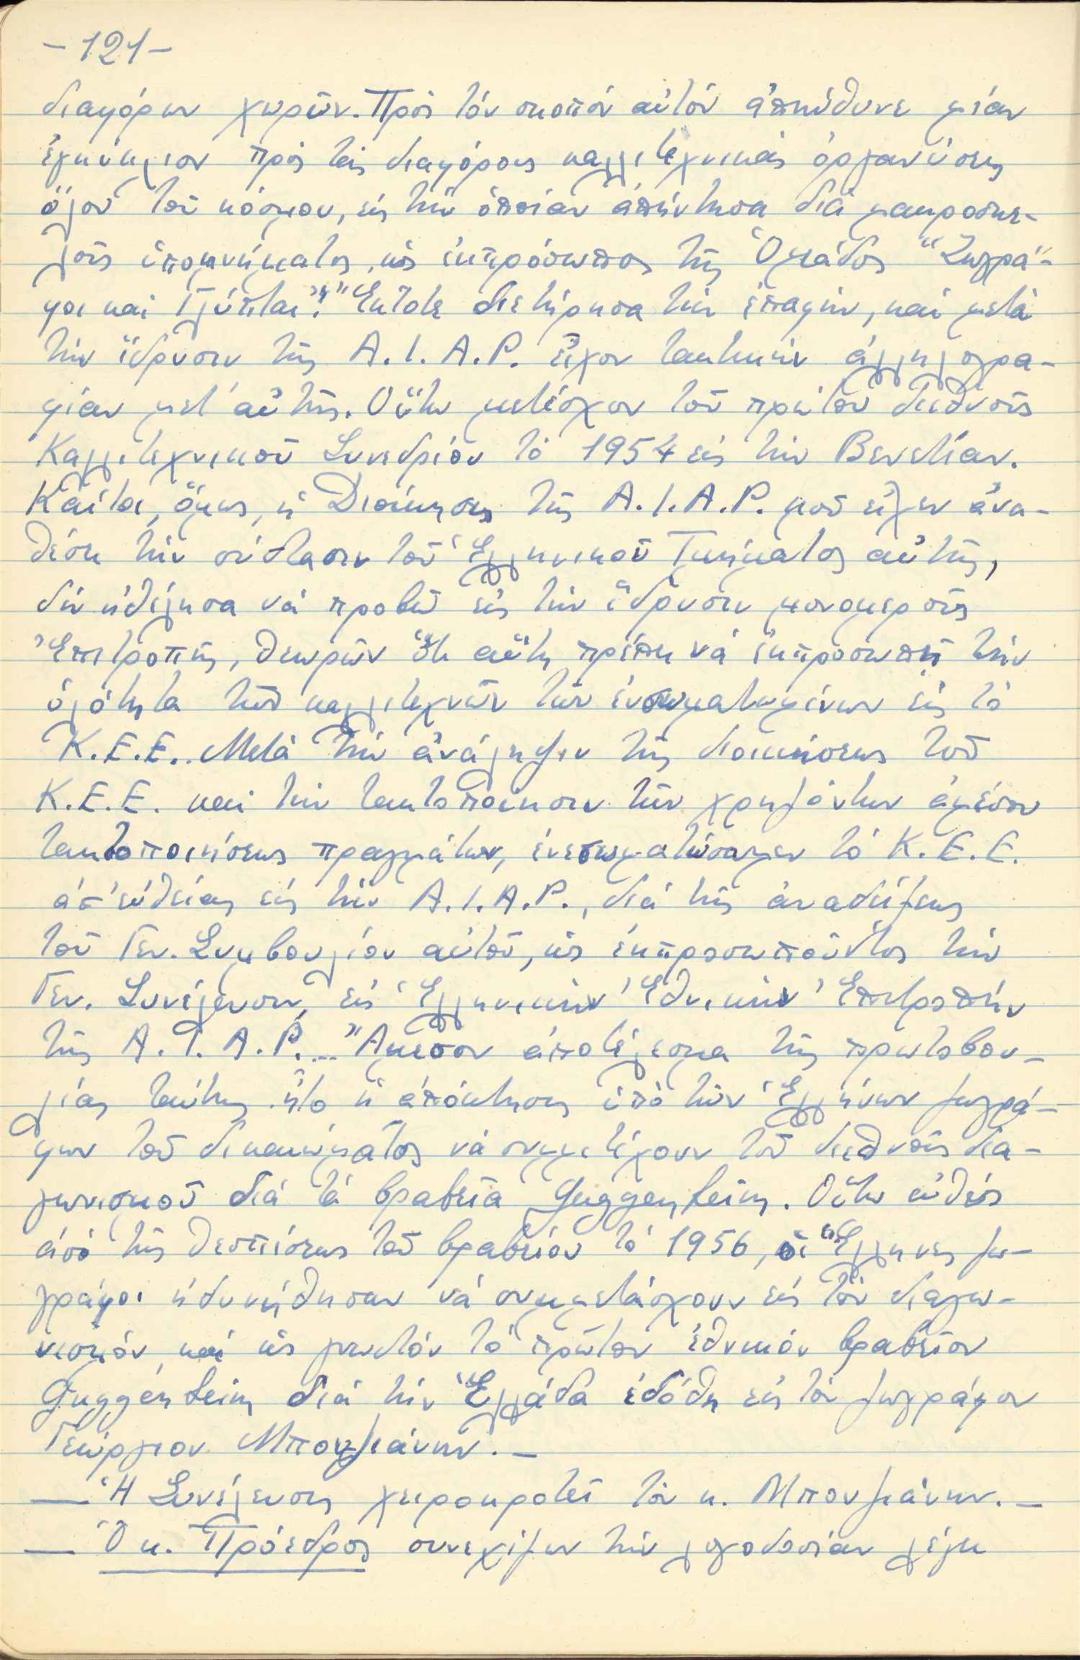 -121-
διαφόρων χωρῶν. Πρὸς τόν σκοπόν αὐτόν ἀπηύθυνε μίαν
ἐγκύκλιον πρός τάς διαφόρους καλλιτεχνικάς ὀργανώσεις
ὅλου τοῦ κόσμου, εἰς τήν ὁποίαν ἀπήντησα διά μακροσκε-
λοῦς ὑπομνήματος, ὡς ἐκπρόσωπος τῆς Ὁμάδος "Ζωγρά-
φοι καί Γλύπται". Ἔκτοτε διετήρησα τήν ἐπαφήν, καί μετά
τήν ἵδρυσιν τῆς A.I.A.P. εἶχον τακτικήν ἀλληλογρα-
φίαν μετ' αὐτῆς. Οὕτω μετέσχον τοῦ πρώτου Διεθνοῦς
Καλλιτεχνικοῦ Συνεδρίου τό 1954 εἰς τήν Βενετίαν.
Καίτοι, ὅμως, ἡ Διοίκησις τῆς A.I.A.P. μοῦ εἶχεν ἀνα-
θέσει τήν σύστασιν τοῦ Ἑλληνικοῦ Τμήματος αὐτῆς,
δέν ἠθέλησα νά προβῶ εἰς τήν ἵδρυσιν μονομεροῦς
Ἐπιτροπῆς, θεωρῶν ὅτι αὕτη πρέπει νά ἐκπροσωπῇ τήν
ὁλότητα τῶν καλλιτεχνῶν τῶν ἐνσωματωμένων εἰς τό
Κ.Ε.Ε.. Μετά τήν ἀνάληψιν τῆς διοικήσεως τοῦ
Κ.Ε.Ε. καί τήν τακτοποίησιν τῶν χρηζόντων ἀμέσου
τακτοποιήσεως πραγμάτων, ἐνεσωματώσαμεν τό Κ.Ε.Ε.
ἀπ' εὐθείας εἰς τήν A.I.A.P., διά τῆς ἀναδείξεως
τοῦ Γεν. Συμβουλίου αὐτοῦ, ὡς ἐκπροσωποῦντος τήν
Γεν. Συνέλευσιν, εἰς Ἑλληνικήν Ἐθνικήν Ἐπιτροπήν
τῆς A.I.A.P... Ἄμεσον ἀποτέλεσμα τῆς πρωτοβου-
λίας ταύτης ἦτο ἡ ἀπόκτησις ὑπό τῶν Ἑλλήνων ζωγρά-
φων τοῦ δικαιώματος νά συμμετέχουν τοῦ διεθνοῦς δια-
γωνισμοῦ διά τά βραβεῖα Guggenheim. Οὕτω εὐθύς
ἀπό τῆς θεσπίσεως τοῦ βραβείου τό 1956, οἱ Ἕλληνες ζω-
γράφοι ἠδυνήθησαν νά συμμετάσχουν εἰς τόν διαγω-
νισμόν, καί ὡς γνωστόν τό πρῶτον ἐθνικόν βραβεῖον
Guggenheim διά τήν Ἑλλάδα ἐδόθη εἰς τόν ζωγράφον
Γεώργιον Μπουζιάνην.—
— Ἡ Συνέλευσις χειροκροτεῖ τόν κ. Μπουζιάνην.—
— Ὁ κ. Πρόεδρος συνεχίζων τήν λογοδοσίαν λέγει